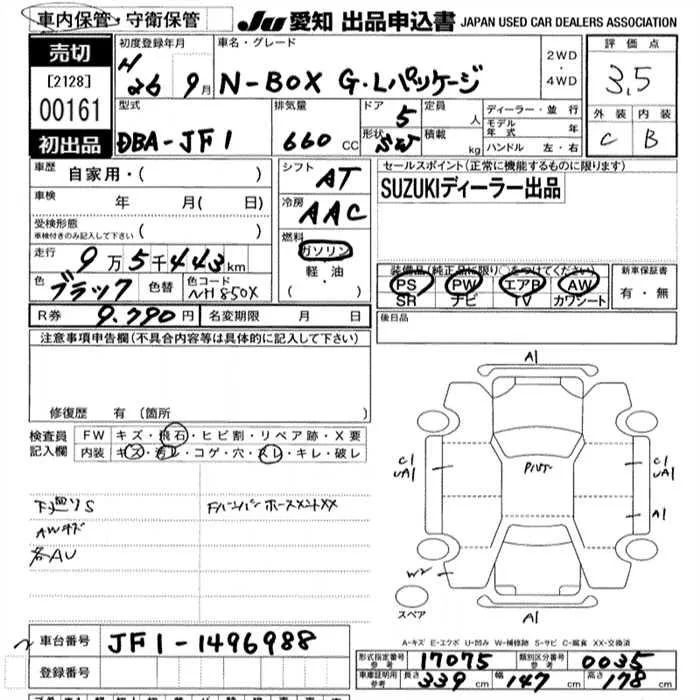 車内保管・守衛保管
JU 愛知 出品申込書 JAPAN USED CAR DEALERS ASSOCIATION
売切
[2128]
00161
初出品
初度登録年月 車名・グレード
H26 9月 N-BOX G・Lパッケージ 2WD・4WD
評価点
3.5
外装 内装
C B
型式 排気量 ドア 定員 ディーラー・並行
DBA-JF1 660CC 5 人 モデル年式 年
形状 SW 積載 kg ハンドル 左・右
車歴 自家用・( )
シフト AT
セールスポイント(正常に機能するものに限ります)
SUZUKIディーラー出品
車検 年 月( 日)
冷房 AAC
受検形態
車検付きのみ記入して下さい ( )
燃料 ガソリン
軽・油
( ・ )
走行 9万5千443km
色 ブラック 色替 色コード NH850X
装備品(純正品に限り○をつけてください) 新車保証書
PS PW エアB AW 有・無
SR ナビ TV カワシート
R券 9.790円 名変期限 月 日
後日品
注意事項申告欄(不具合内容等は具体的に記入して下さい)
修復歴 有 (箇所
検査員記入欄
FW キズ・飛石・ヒビ割・リペア跡・X要
内装 キズ・汚レ・コゲ・穴・スレ・キレ・破レ
下廻りS
AWキズ
各AU
A1
C1
UA1
C1
UA1
A1
W2
A1
スペア
A-キズ E-エクボ U-凹み W-補修跡 S-サビ C-腐食 XX-交換済
車台番号 JF1-1496988
登録番号
形式指定番号 参考 17075 類別区分番号 参考 0035
車庫証明用 参考 長さ 339cm 幅 147cm 高さ 178cm